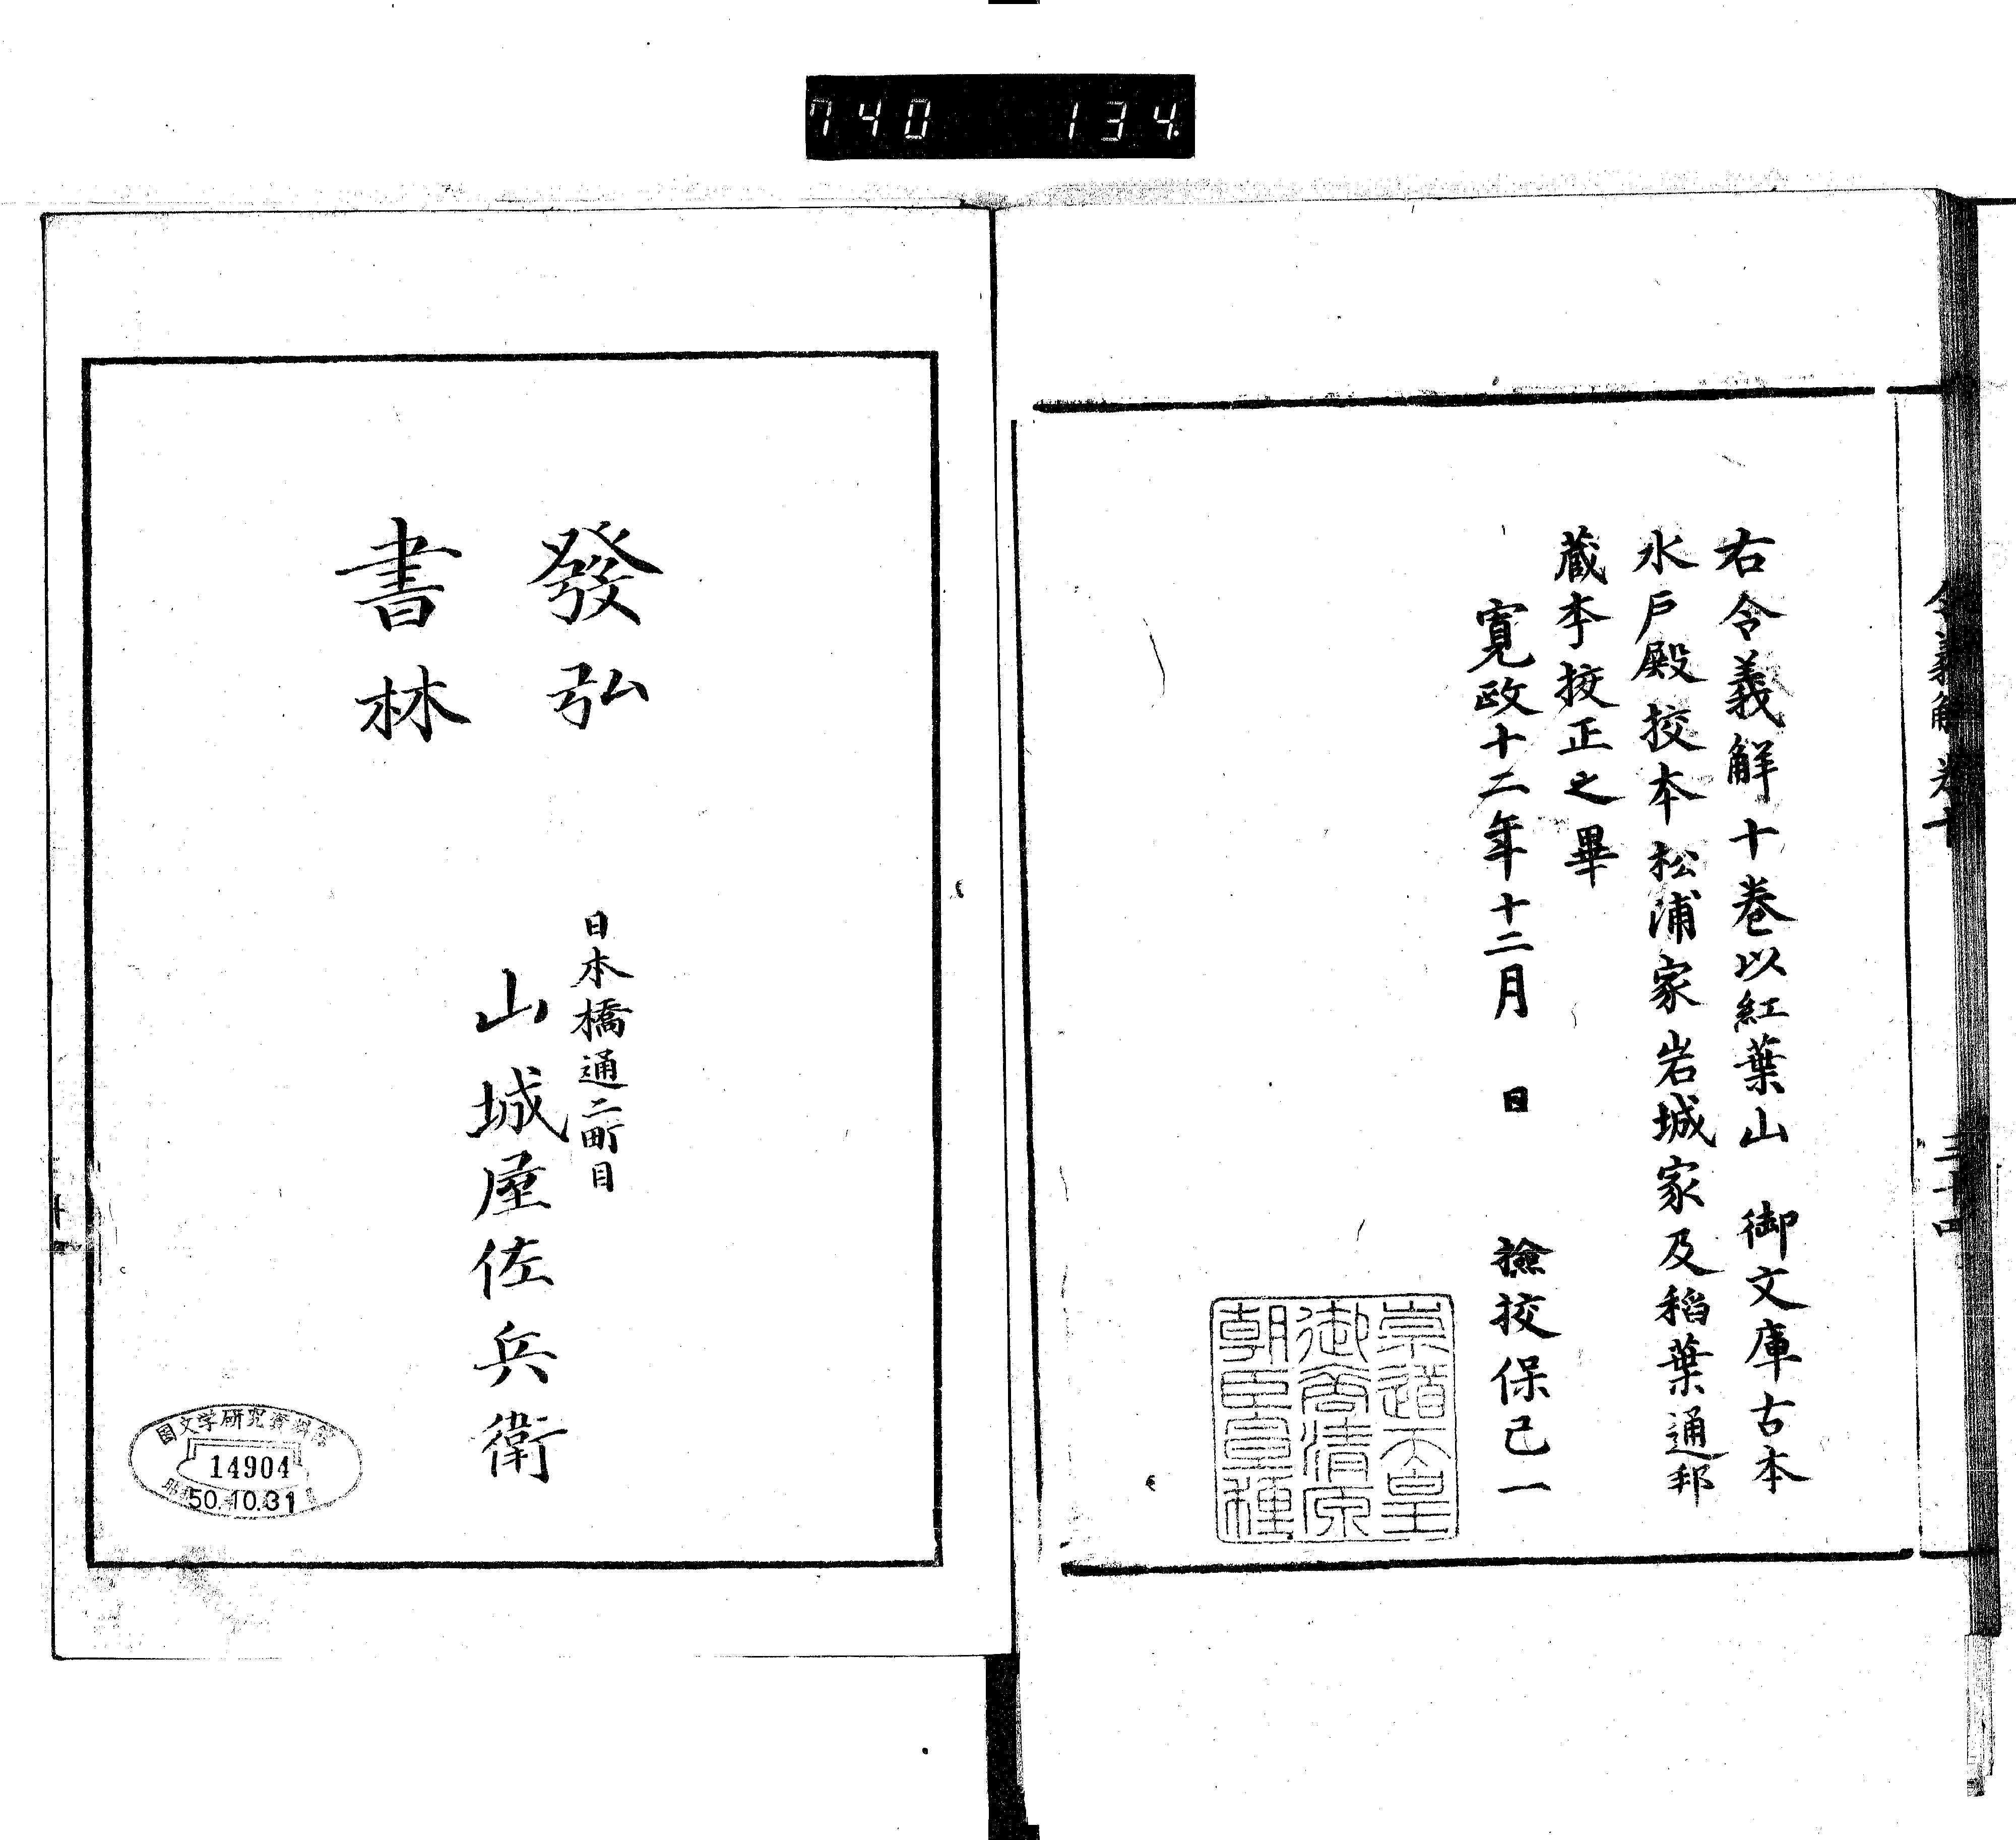 740 134
令義解 卷十 三十四
右令義觧十卷以紅葉山 御文庫古本
水戸殿挍本松浦家岩城家及稻葉通邦
蔵本挍正之畢
寛政十二年十二月 日 撿挍保己一
崇道天皇
御裔清原
朝臣宣種
發弘
書林
日本橋通二町目
山城屋佐兵衛
国文学研究資料館
14904
50.10.31